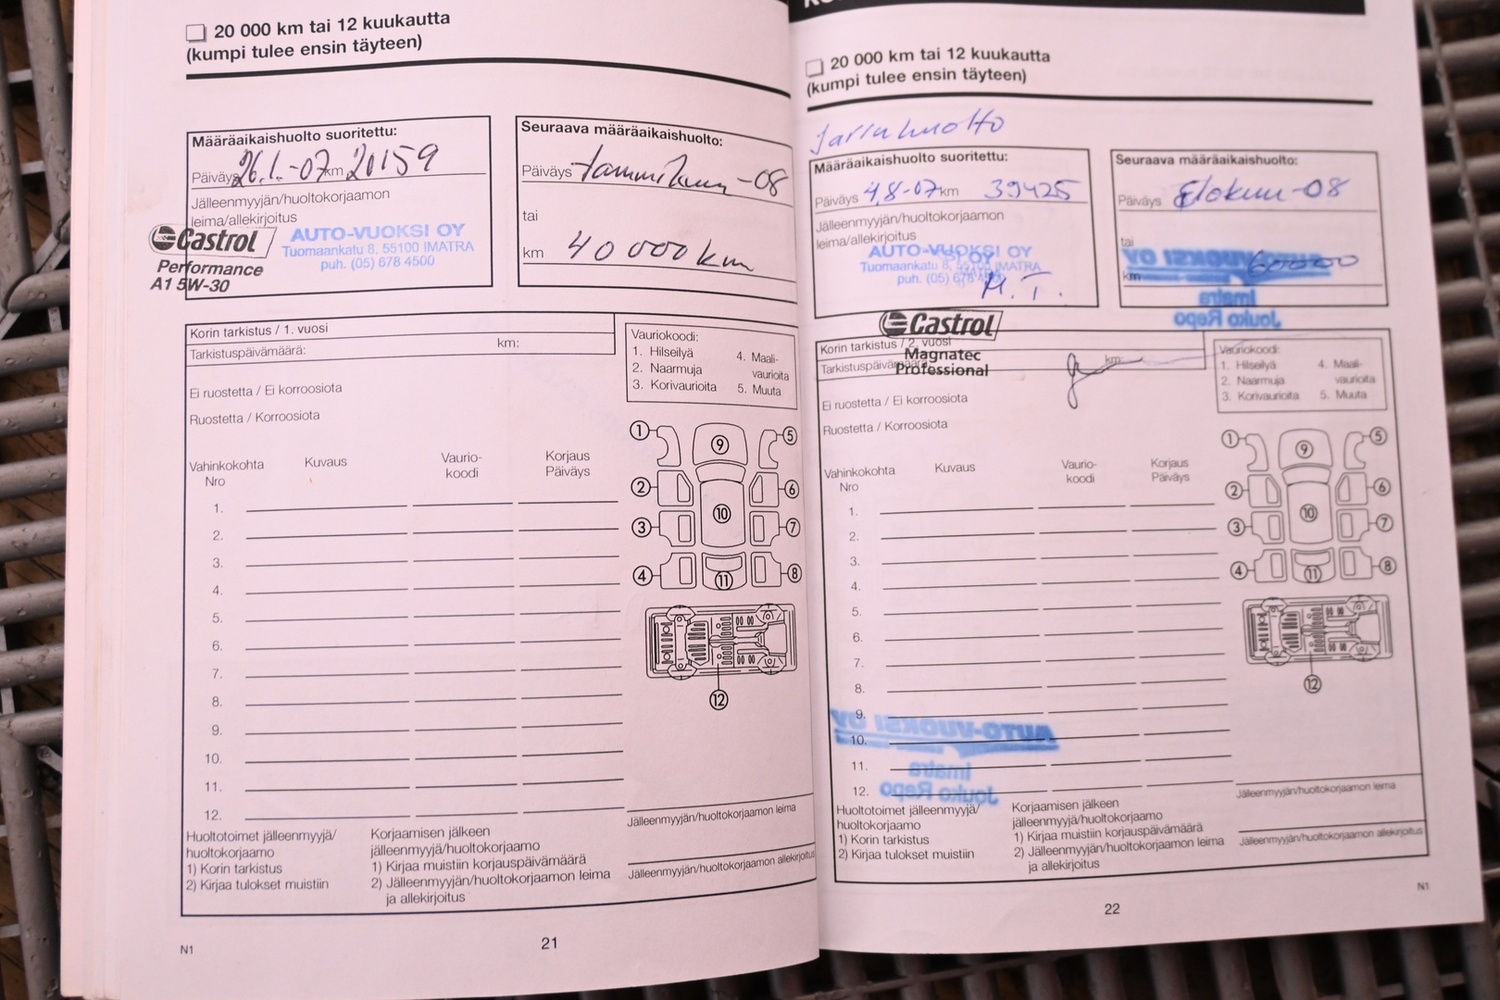 20 000 km tai 12 kuukautta
(kumpi tulee ensin täyteen)
Määräaikaishuolto suoritettu:
Päiväys 26.1.-07 km 20159
Jälleenmyyjän/huoltokorjaamon
leima/allekirjoitus
AUTO-VUOKSI OY
Tuomaankatu 8, 55100 IMATRA
puh. (05) 678 4500
Castrol
Performance
A1 5W-30
Seuraava määräaikaishuolto:
Päiväys tammikuu -08
tai
km 40 000 km
Korin tarkistus / 1. vuosi
Tarkistuspäivämäärä: km:
Ei ruostetta / Ei korroosiota
Ruostetta / Korroosiota
Vauriokoodi:
1. Hilseilyä 4. Maali-
vaurioita
2. Naarmuja
3. Korivaurioita 5. Muuta
Vahinkokohta Kuvaus Vaurio- Korjaus
Nro koodi Päiväys
1.
2.
3.
4.
5.
6.
7.
8.
9.
10.
11.
12.
1 5
9
2 6
10
3 7
4 11 8
12
Jälleenmyyjän/huoltokorjaamon leima
Jälleenmyyjän/huoltokorjaamon allekirjoitus
Huoltotoimet jälleenmyyjä/
huoltokorjaamo
1) Korin tarkistus
2) Kirjaa tulokset muistiin
Korjaamisen jälkeen
jälleenmyyjä/huoltokorjaamo
1) Kirjaa muistiin korjauspäivämäärä
2) Jälleenmyyjän/huoltokorjaamon leima
ja allekirjoitus
N1
21
20 000 km tai 12 kuukautta
(kumpi tulee ensin täyteen)
Jarruhuolto
Määräaikaishuolto suoritettu:
Päiväys 4.8-07 km 39425
Jälleenmyyjän/huoltokorjaamon
leima/allekirjoitus
AUTO-VUOKSI OY
Tuomaankatu 8, 55100 IMATRA
puh. (05) 678 4500
M.T.
Seuraava määräaikaishuolto:
Päiväys Elokuu-08
tai
km 60000
AUTO-VUOKSI OY
Imatra
Jouko Repo
Castrol
Magnatec
Professional
Korin tarkistus / 2. vuosi
Tarkistuspäivämäärä: km:
Ei ruostetta / Ei korroosiota
Ruostetta / Korroosiota
Vauriokoodi:
1. Hilseilyä 4. Maali-
vaurioita
2. Naarmuja
3. Korivaurioita 5. Muuta
Vahinkokohta Kuvaus Vaurio- Korjaus
Nro koodi Päiväys
1.
2.
3.
4.
5.
6.
7.
8.
9.
10.
11.
12.
1 5
9
2 6
10
3 7
4 11 8
12
AUTO-VUOKSI OY
Imatra
Jouko Repo
Jälleenmyyjän/huoltokorjaamon leima
Jälleenmyyjän/huoltokorjaamon allekirjoitus
Huoltotoimet jälleenmyyjä/
huoltokorjaamo
1) Korin tarkistus
2) Kirjaa tulokset muistiin
Korjaamisen jälkeen
jälleenmyyjä/huoltokorjaamo
1) Kirjaa muistiin korjauspäivämäärä
2) Jälleenmyyjän/huoltokorjaamon leima
ja allekirjoitus
N1
22